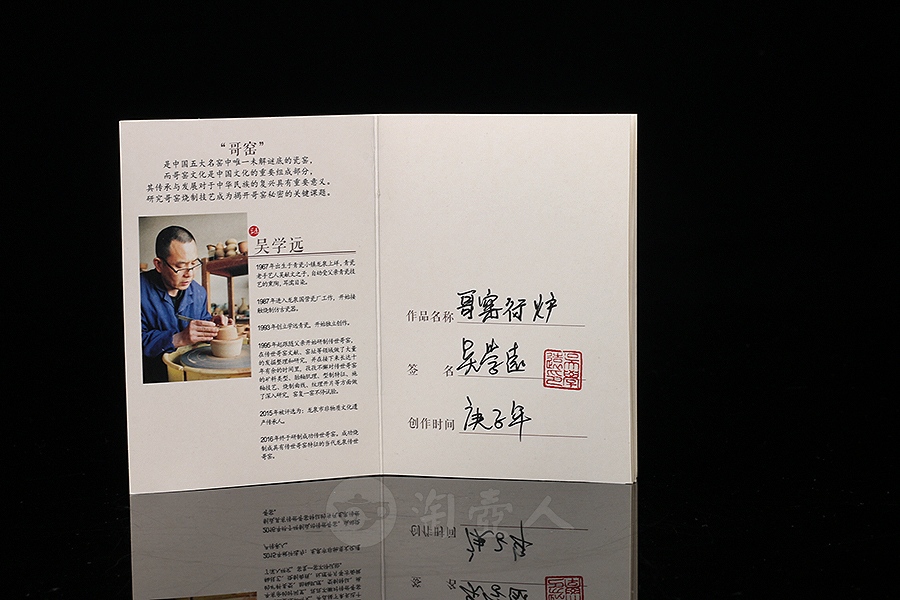 “哥窑”
是中国五大名窑中唯一未解谜底的瓷窑，
而哥窑文化是中国文化的重要组成部分，
其传承与发展对于中华民族的复兴具有重要意义。
研究哥窑烧制技艺成为揭开哥窑秘密的关键课题。
吴学远
1967年出生于青瓷小镇龙泉上垟，青瓷
老手艺人吴献文之子，自幼受父亲青瓷技
艺的熏陶，耳濡目染。
1987年进入龙泉国营瓷厂工作，开始接
触烧制仿古瓷器。
1993年创立学远青瓷，开始独立创作。
1995年起跟随父亲开始研制传世哥窑，
在传世哥窑文献、窑址等领域做了大量
的发掘整理和研究，并在接下来长达十
年有余的时间里，孜孜不懈对传世哥窑
的矿料类型、胎釉肌理、型制特征、施
釉技艺、烧制曲线、纹理开片等方面做
了深入研究，窑复一窑不停试验。
2015年被评选为：龙泉市非物质文化遗
产传承人。
2016年终于研制成功传世哥窑，成功烧
制成具有传世哥窑特征的当代龙泉传世
哥窑。
作品名称 哥窑行炉
签 名 吴学远
吴学
远印
创作时间 庚子年
淘壶人